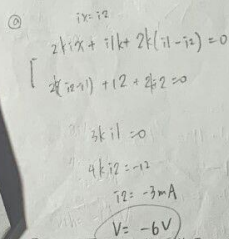 a ix = i2
2kix + i1k + 2k(i1 - i2) = 0
2k(i2-i1) + 12 + 2ki2 = 0
3ki1 = 0
4ki2 = -12
i2 = -3mA
V = -6V